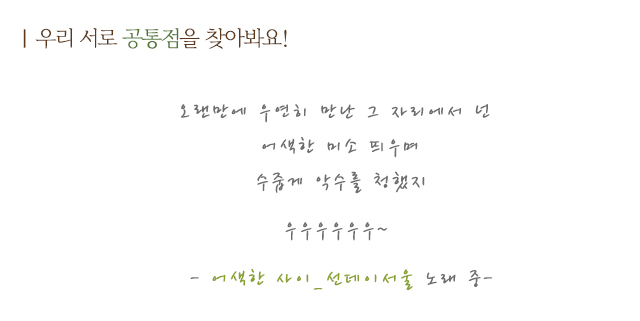 | 우리 서로 공통점을 찾아봐요!
오랜만에 우연히 만난 그 자리에서 넌
어색한 미소 띄우며
수줍게 악수를 청했지
우우우우우우~
- 어색한 사이_선데이서울 노래 중-